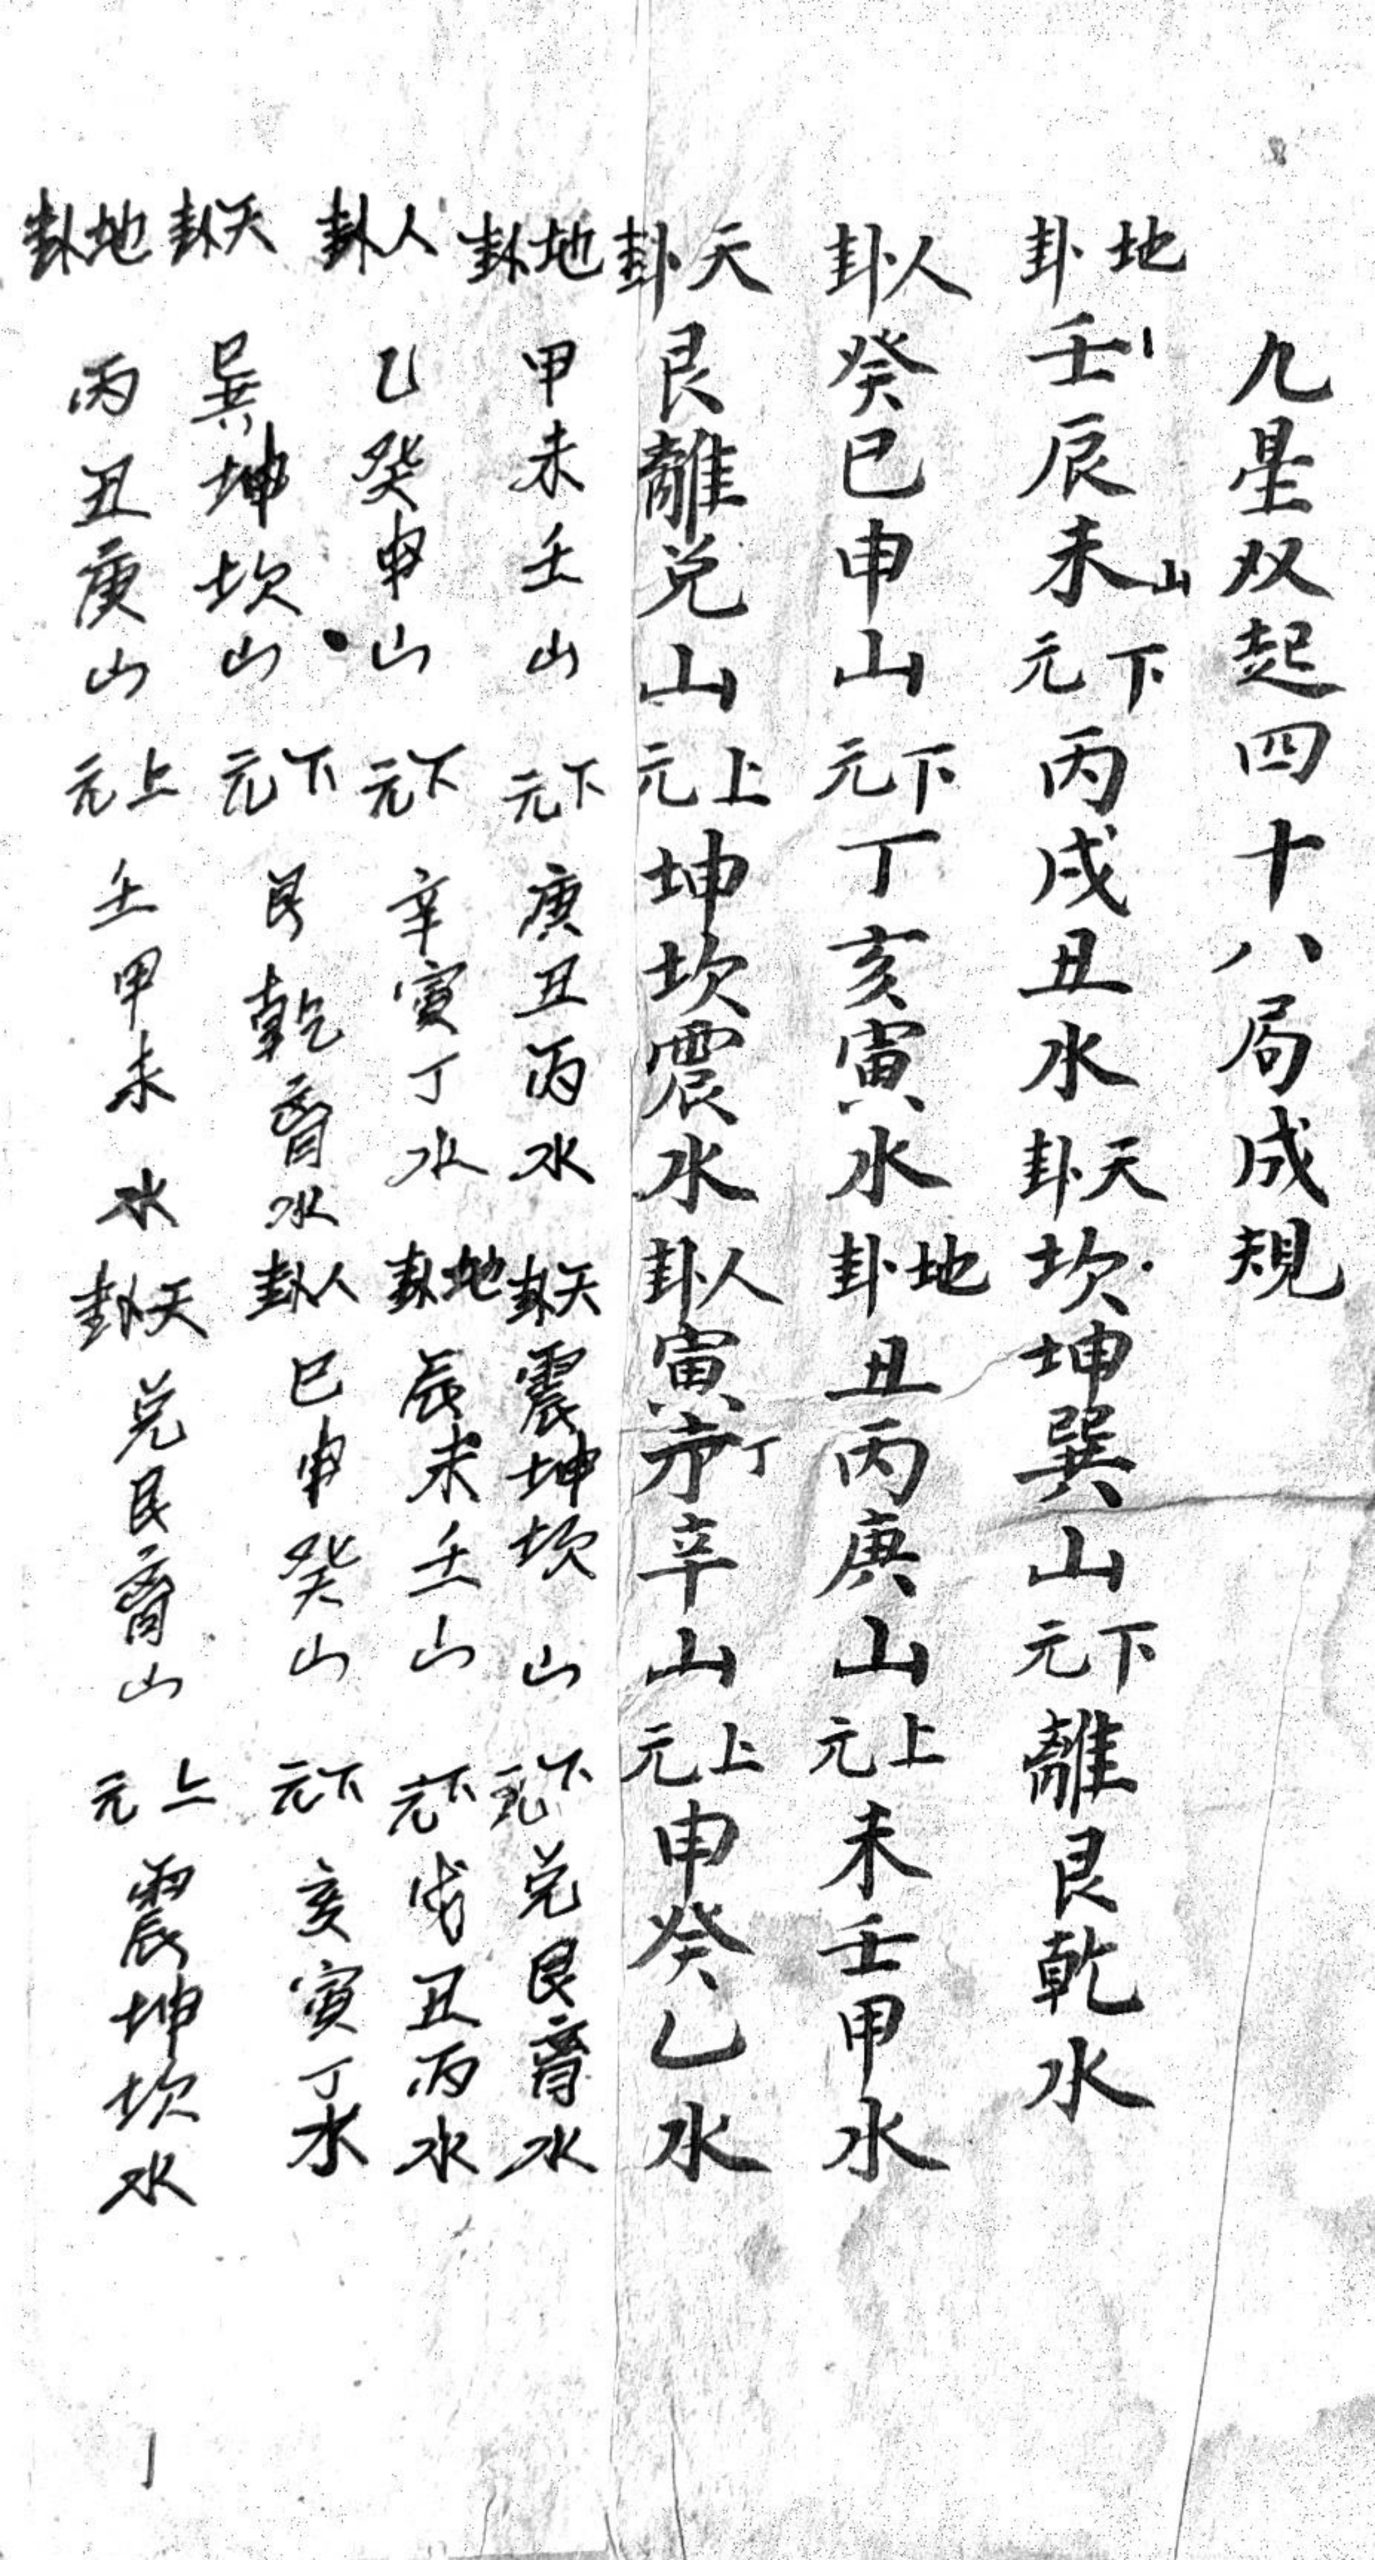 九星双起四十八局成規
地卦壬辰未山下元丙戌丑水天卦坎坤巽山下元離艮乾水
人卦癸巳申山下元丁亥寅水地卦丑丙庚山上元未壬甲水
天卦艮離兑山上元坤坎震水人卦寅丁辛山上元申癸乙水
地卦甲未壬山下元庚丑丙水天卦震坤坎山下元兑艮离水
人卦乙癸申山下元辛寅丁水地卦辰未壬山下元戌丑丙水
天卦巽坤坎山下元艮乾离水人卦巳申癸山下元亥寅丁水
地卦丙丑庚山上元壬甲未水天卦兑艮离山上元震坤坎水